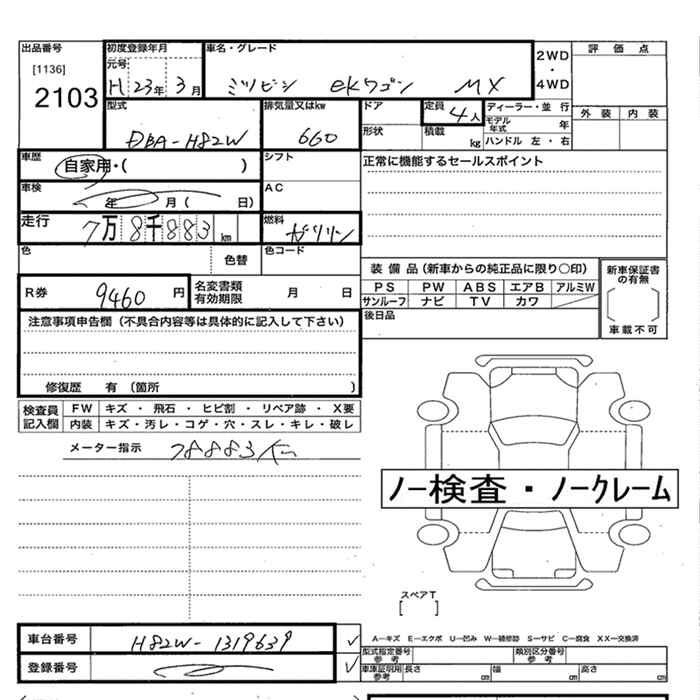 出品番号 初度登録年月 車名・グレード 評価点
[1136] 元号 2WD・4WD
2103 H 23年 3月 ミツビシ eKワゴン MX
型式 排気量又はkw ドア 定員 4人 ディーラー・並行 外装 内装
モデル年式 年
DBA-H82W 660 形状 積載 kg ハンドル 左・右
車歴 自家用・( ) シフト 正常に機能するセールスポイント
車検 年 月( 日) AC
走行 7万8千883km 燃料 ガソリン
色 色替 色コード
装備品(新車からの純正品に限り○印) 新車保証書の有無
R券 9460円 名変書類有効期限 月 日 PS PW ABS エアB アルミW
サンルーフ ナビ TV カワ
注意事項申告欄(不具合内容等は具体的に記入して下さい) 後日品 車載不可
修復歴 有 (箇所 )
検査員記入欄 FW キズ・飛石・ヒビ割・リペア跡・X要
内装 キズ・汚レ・コゲ・穴・スレ・キレ・破レ
メーター指示 78883km
ノー検査・ノークレーム
スペアT
[ ]
車台番号 H82W-1319639 ✓
A—キズ E—エクボ U—凹み W—補修跡 S—サビ C—腐食 XX—交換済
型式指定番号 参考 類別区分番号 参考
登録番号 ✓ 車庫証明用参考 長さ cm 幅 cm 高さ cm